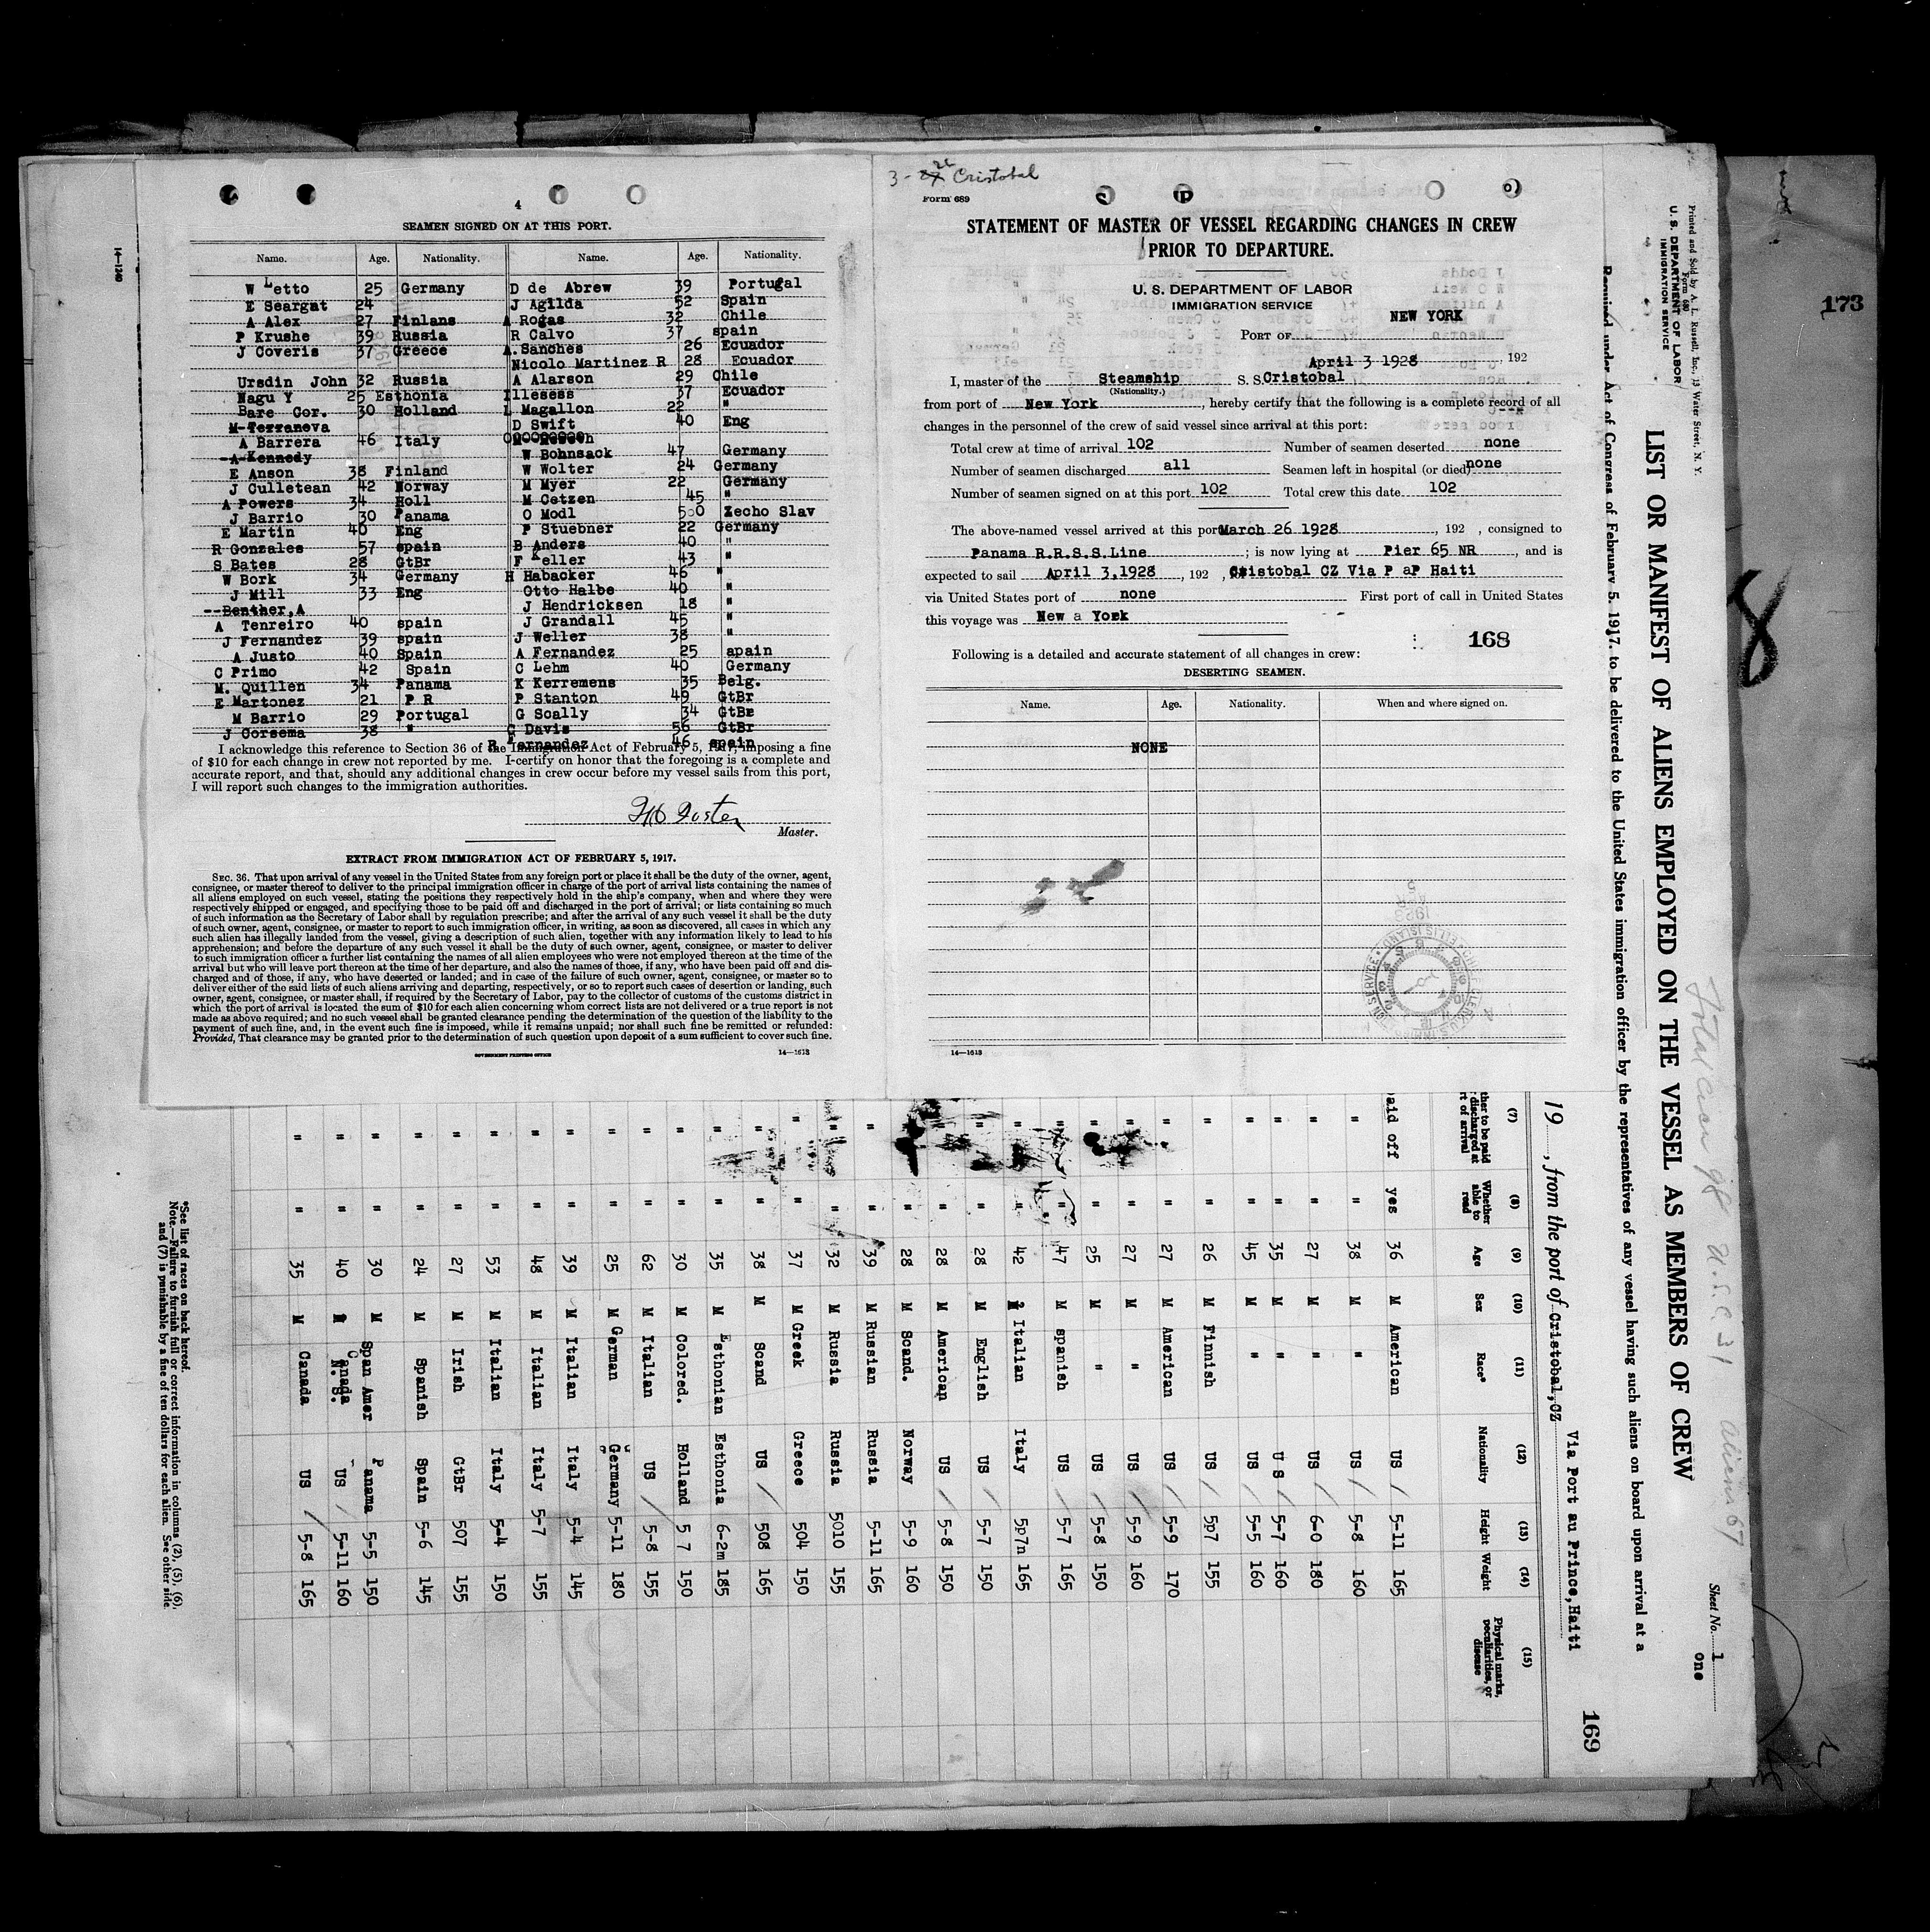 4
SEAMEN SIGNED ON AT THIS PORT.
Name. Age. Nationality. Name. Age. Nationality.
W Letto 25 Germany D de Abrew 39 Portugal
E Seargat 24 J Agilda 52 Spain
A Alex 27 Finlans A Rogas 32 Chile
P Krushe 39 Russia R Calvo 37 spain
J Coveris 37 Greece A.Sanches 26 Ecuador
Nicolo Martinez R 28 Ecuador
Ursdin John 32 Russia A Alarson 29 Chile
Nagu Y 25 Esthonia Illesess 37 Ecuador
Bare Cor. 30 Holland L Magallon 22 "
M-Terraneva D Swift 40 Eng
A Barrera 46 Italy
-A-Kennedy W Bohnsack 47 Germany
E Anson 38 Finland W Wolter 24 Germany
J Culletean 42 Norway M Myer 22 Germany
A Powers 34 Holl M Cetzen 45 "
J Barrio 30 Panama O Modl 500 Zecho Slav
E Martin 40 Eng P Stuebner 22 Germany
R Gonzales 57 spain B Anders 40 "
S Bates 28 GtBr F Keller 43 "
W Bork 34 Germany H Habacker 46 "
J Mill 33 Eng Otto Halbe 40 "
--Benther,A J Hendricksen 18 "
A Tenreiro 40 spain J Grandall 45 "
J Fernandez 39 spain J Weller 38 "
A Justo 40 Spain A Fernandez 25 apain
C Primo 42 Spain C Lehm 40 Germany
M. Quillen 34 Panama K Kerremens 35 Belg.
E Martonez 21 P R P Stanton 49 GtBr
M Barrio 29 Portugal G Scally 34 GtBr
J Corsema 38 " G Davis 56 GtBr
R Fernandez 46 spain
I acknowledge this reference to Section 36 of the Immigration Act of February 5, 1917, imposing a fine
of $10 for each change in crew not reported by me. I certify on honor that the foregoing is a complete and
accurate report, and that, should any additional changes in crew occur before my vessel sails from this port,
I will report such changes to the immigration authorities.
Master.
EXTRACT FROM IMMIGRATION ACT OF FEBRUARY 5, 1917.
SEC. 36. That upon arrival of any vessel in the United States from any foreign port or place it shall be the duty of the owner, agent,
consignee, or master thereof to deliver to the principal immigration officer in charge of the port of arrival lists containing the names of
all aliens employed on such vessel, stating the positions they respectively hold in the ship's company, when and where they were
respectively shipped or engaged, and specifying those to be paid off and discharged in the port of arrival; or lists containing so much
of such information as the Secretary of Labor shall by regulation prescribe; and after the arrival of any such vessel it shall be the duty
of such owner, agent, consignee, or master to report to such immigration officer, in writing, as soon as discovered, all cases in which any
such alien has illegally landed from the vessel, giving a description of such alien, together with any information likely to lead to his
apprehension; and before the departure of any such vessel it shall be the duty of such owner, agent, consignee, or master to deliver
to such immigration officer a further list containing the names of all alien employees who were not employed thereon at the time of the
arrival but who will leave port thereon at the time of her departure, and also the names of those, if any, who have been paid off and dis-
charged and of those, if any, who have deserted or landed; and in case of the failure of such owner, agent, consignee, or master so to
deliver either of the said lists of such aliens arriving and departing, respectively, or so to report such cases of desertion or landing, such
owner, agent, consignee, or master shall, if required by the Secretary of Labor, pay to the collector of customs of the customs district in
which the port of arrival is located the sum of $10 for each alien concerning whom correct lists are not delivered or a true report is not
made as above required; and no such vessel shall be granted clearance pending the determination of the question of the liability to the
payment of such fine, and, in the event such fine is imposed, while it remains unpaid; nor shall such fine be remitted or refunded:
Provided, That clearance may be granted prior to the determination of such question upon deposit of a sum sufficient to cover such fine.
GOVERNMENT PRINTING OFFICE 14—1613
14-1240
3 - 26 Cristobal
Form 689
STATEMENT OF MASTER OF VESSEL REGARDING CHANGES IN CREW
PRIOR TO DEPARTURE.
U. S. DEPARTMENT OF LABOR
IMMIGRATION SERVICE
PORT OF NEW YORK
April 3 1928, 192
I, master of the Steamship S. S. Cristobal
(Nationality.)
from port of New York, hereby certify that the following is a complete record of all
changes in the personnel of the crew of said vessel since arrival at this port:
Total crew at time of arrival 102 Number of seamen deserted none
Number of seamen discharged all Seamen left in hospital (or died) none
Number of seamen signed on at this port 102 Total crew this date 102
The above-named vessel arrived at this port March 26 1928, 192 , consigned to
Panama R.R.S.S.Line ; is now lying at Pier 65 NR, and is
expected to sail April 3,1928, 192 , Cristobal CZ Via P aP Haiti
via United States port of none First port of call in United States
this voyage was New a York
168
Following is a detailed and accurate statement of all changes in crew:
DESERTING SEAMEN.
Name. Age. Nationality. When and where signed on.
NONE
14—1613
173
8
Printed and Sold by A. L. Russell, Inc., 13 Water Street, N. Y.
Form 680
U. S. DEPARTMENT OF LABOR
IMMIGRATION SERVICE
LIST OR MANIFEST OF ALIENS EMPLOYED ON THE VESSEL AS MEMBERS OF CREW
Sheet No. 1
one
Required under Act of Congress of February 5, 1917, to be delivered to the United States immigration officer by the representatives of any vessel having such aliens on board upon arrival at a
Total crew 98 U.S.C. 31 aliens 67
Via Port au Prince,Haiti
19 , from the port of Cristobal,CZ
169
(7) (8) (9) (10) (11) (12) (13) (14) (15)
ther to be paid discharged at rt of arrival Whether able to read Age Sex Race* Nationality Height Weight Physical marks, peculiarities, or disease
aid off yes 36 M American US 5-11 165
" " 38 M " US 5-8 160
" " 27 M " US 6-0 180
" " 35 M " U S 5-7 160
" " 45 M " US 5-5 160
" " 26 M Finnish US 5p7 155
" " 27 M American US 5-9 170
" " 27 M " US 5-9 160
" " 25 M " US 5-8 150
" " 47 M spanish US 5-7 165
" " 42 M Italian Italy 5p7n 165
" " 28 M English US 5-7 150
" " 28 M American US 5-8 150
" " 28 M Scand. Norway 5-9 160
" " 39 M Russian Russia 5-11 165
" " 32 M Russia Russia 5010 155
" " 37 M Greek Greece 504 150
" " 38 M Scand US 508 165
" " 35 M Esthonian Esthonia 6-2m 185
" " 30 M Colored. Holland 5 7 150
" " 62 M Italian US 5-8 155
" " 25 M German Germany 5-11 180
" " 39 M Italian Italy 5-4 145
" " 48 M Italian Italy 5-7 155
" " 53 M Italian Italy 5-4 150
" " 27 M Irish GtBr 507 155
" " 24 M Spanish Spain 5-6 145
" " 30 M Span Amer Panama 5-5 150
" " 40 M Canada N. S. US 5-11 160
" " 35 M Canada US 5-8 165
*See list of races on back hereof.
Note.—Failure to furnish full or correct information in columns (2), (5), (6),
and (7) is punishable by a fine of ten dollars for each alien. See other side.